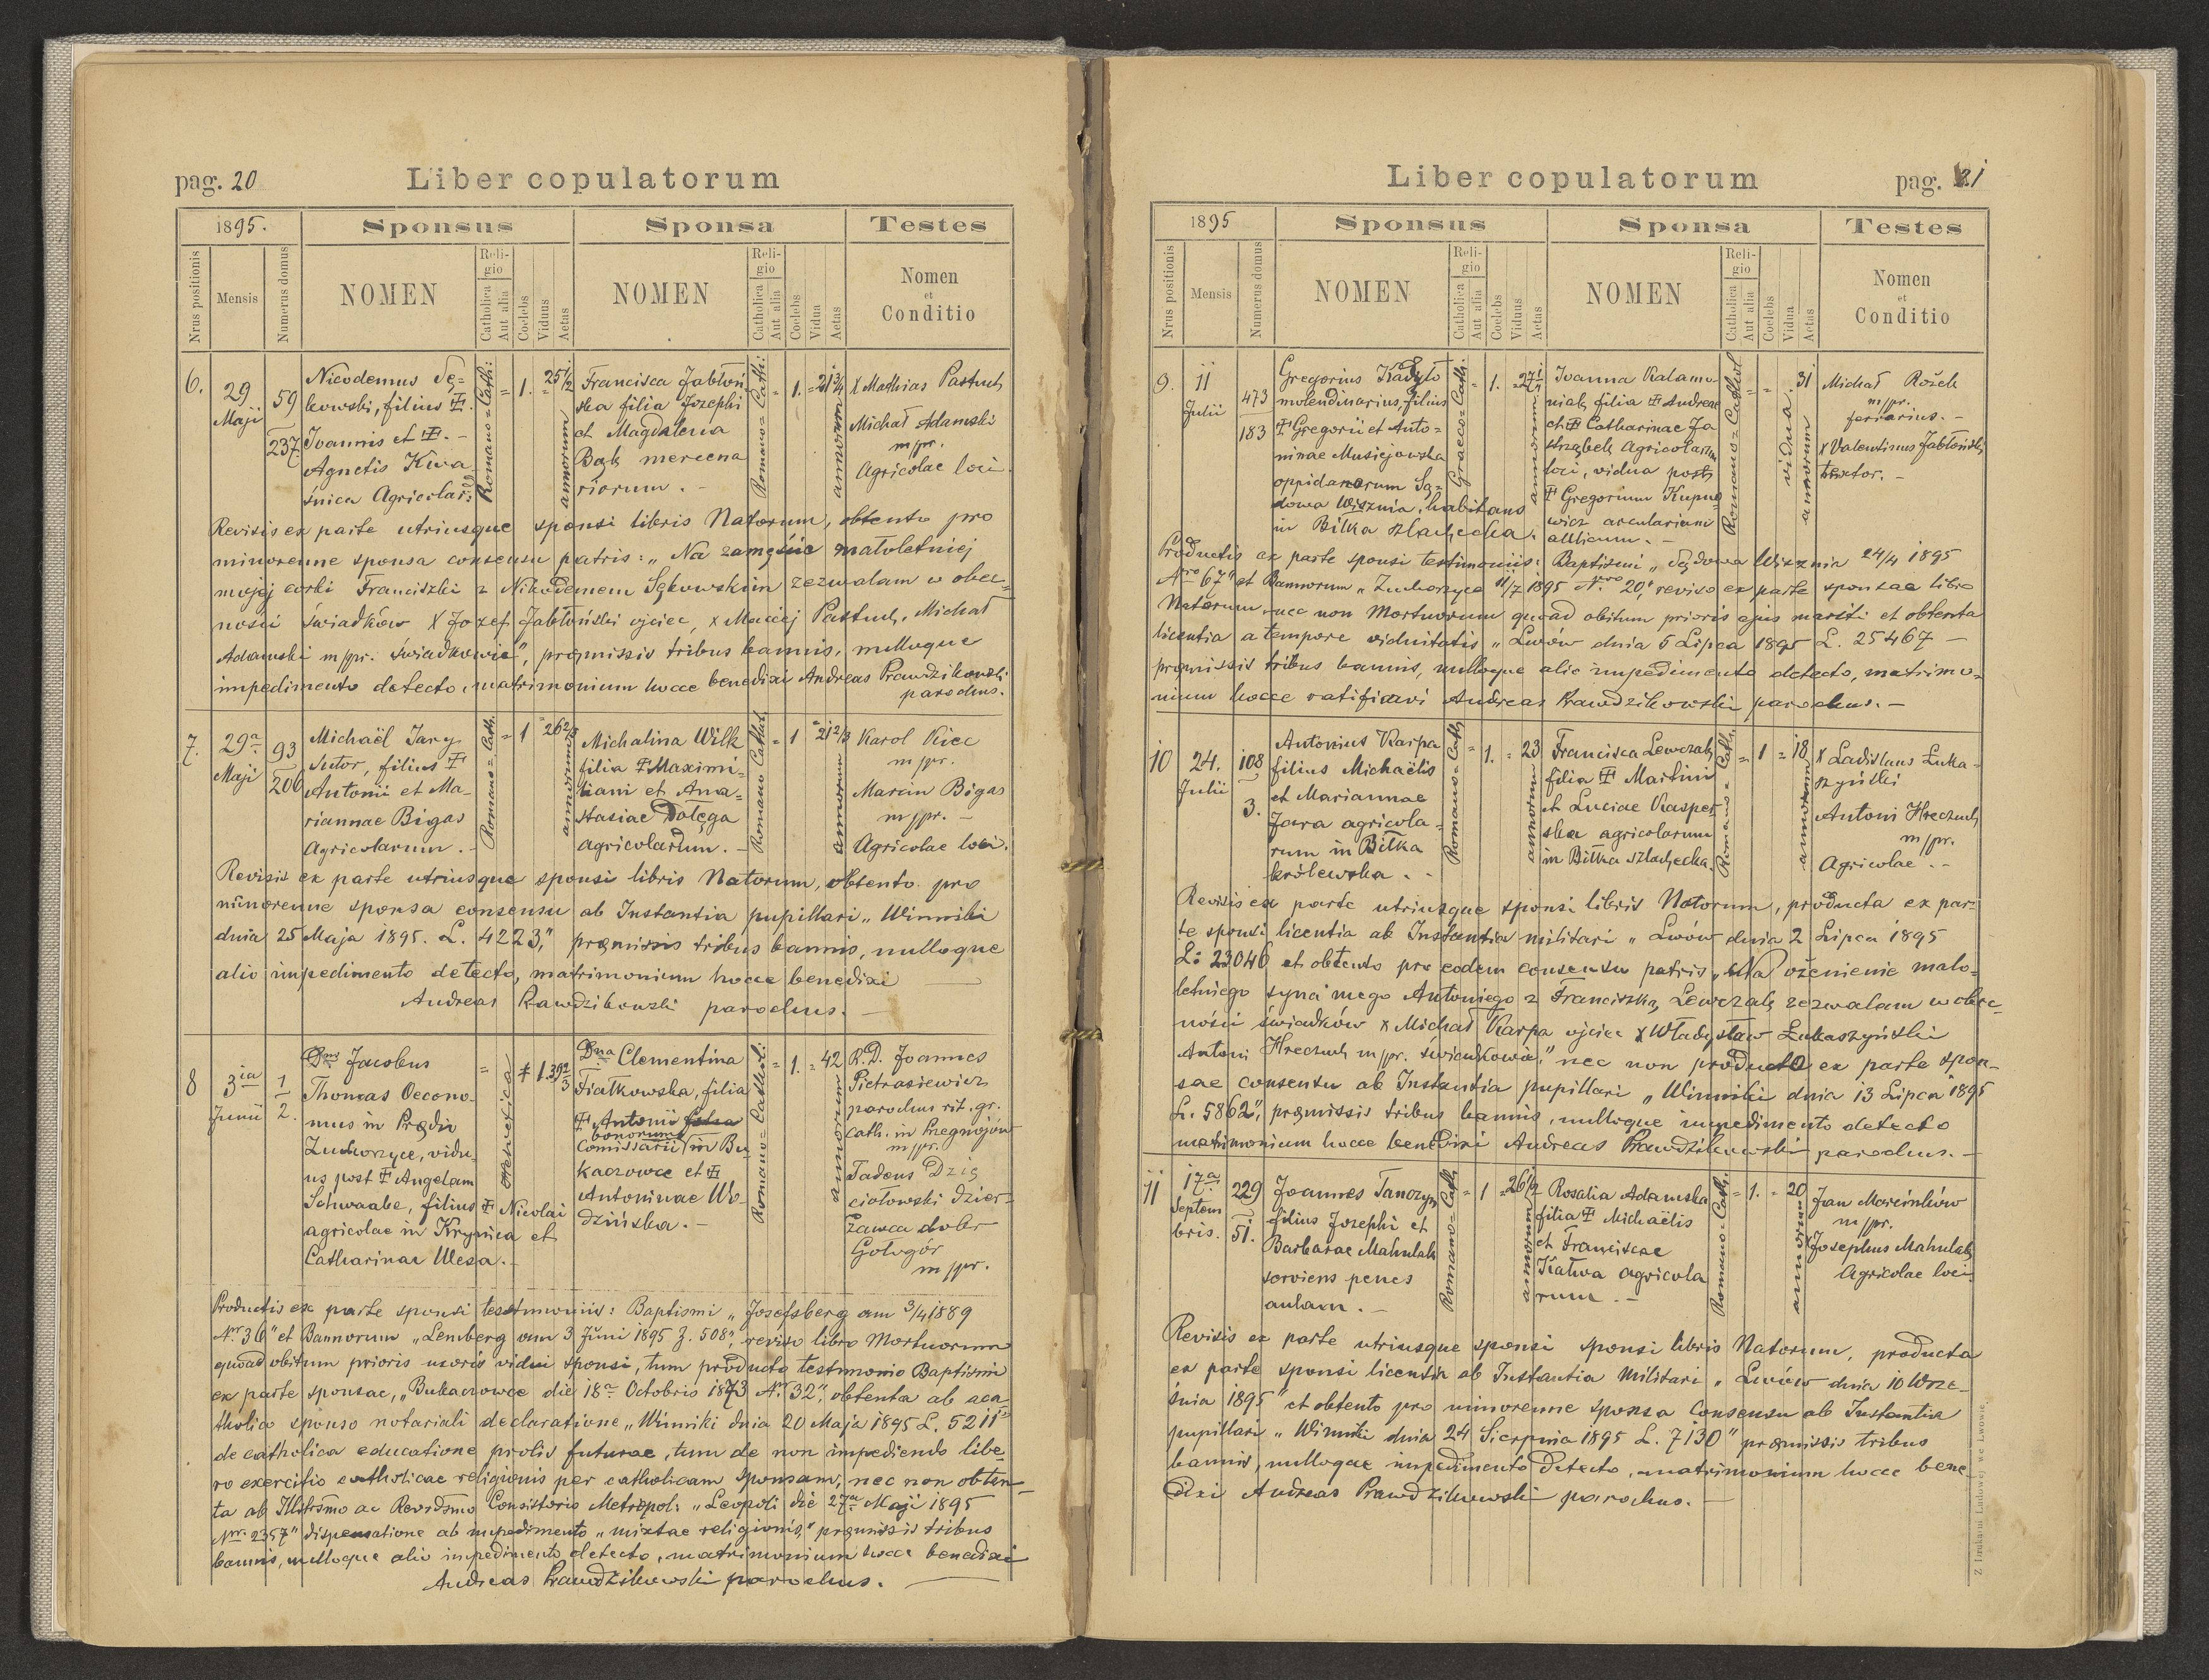 pag. 20
Liber copulatorum
1895.
Sponsus
Sponsa
Testes
Nrus positionis
Mensis
Numerus domus
NOMEN
Religio
Catholica
Aut alia
Coelebs
Viduus
Aetas
NOMEN
Religio
Catholica
Aut alia
Coelebs
Vidua
Aetas
Nomen
et
Conditio
6.
29
Maji
59
237
Nicodemus Sę=
kowski, filius
Joannis et
Agnetis Kwa
śnica Agricolar:
Romano=Cath:
1.
25 1/2
annorum
Francisca Jabłoń
ska filia Josephi
et Magdalena
Bąk mercena
riorum. -
Romano=Cath:
1.
21 3/4
annorum
x Mathias Pastuch
Michał Adamski
m/pr.
Agricolae loci.
Revisis ex parte utriusque sponsi libris Natorum, obtento pro
minorenne sponsa consensu patris: „Na zamęście małoletniej
mojej corki Franciszki z Nikodemem Sękowskim zezwalam w obec=
ności świadków x Jozef Jabłoński ojciec, x Maciej Pastuch, Michał
Adamski m/pr. świadkowie", præmissis tribus bannis, nulloque
impedimento detecto, matrimonium hocce benedixi Andreas Prawdzikowski
parochus.
7.
29a
Maji
93
206
Michaël Jary
Sutor, filius
Antonii et Ma-
riannae Bigas
Agricolarum. -
Romano=Cath.
1
26 2/3
annorum
Michalina Wilk
filia Maximi-
liani et Ana=
stasiae Dołęga
agricolarum. -
Romano Cathol.
1
21 2/3
annorum
Karol Kiec
m/pr.
Marcin Bigas
m/pr. -
Agricolae loci.
Revisis ex parte utriusque sponsi libris Natorum, obtento pro
minorenne sponsa consensu ab Instantia pupillari „Winniki
dnia 25 Maja 1895. L. 4223", præmissis tribus bannis, nulloque
alio impedimento detecto, matrimonium hocce benedixi
Andreas Prawdzikowski parochus. -
8
3ia
Junii
1
2.
Dnus Jacobus
Thomas Oecono-
mus in Prædio
Zuchorzyce, vidu-
us post Angelam
Schwaabe, filius Nicolai
agricolae in Krynica et
Catharinae Wesa. -
Helvetica
1.
39 2/3
Dna Clementina
Fiałkowska, filia
Antonii
bonorum
Comissarii in Bu-
kaczowce et
Antoninae Wo-
dzińska. -
Romano=Cathol:
1.
42
annorum
R.D. Joannes
Pietrasiewicz
parochus rit. gr.
cath. in Pregnojów
m/pr.
Tadeus Dzię
ciołowski dzier-
żawca dobr
Gołogór
m/pr.
Productis ex parte sponsi testimoniis: Baptismi „Josefsberg am 3/4 1889
Nr. 36" et Bannorum „Lemberg am 3 Juni 1895 Z. 508", reviso libro Mortuorum
quoad obitum prioris uxoris vidui sponsi, tum producto testimonio Baptismi
ex parte sponsae, „Bukaczowce die 18a Octobris 1873 Nr. 32", obtenta ab aca-
tholico sponso notariali declaratione „Winniki dnia 20 Maja 1895 L. 5211"
de catholica educatione prolis futurae, tum de non impediendo libe-
ro exercitio catholicae religionis per catholicam sponsam, nec non obten-
ta ab Illstrmo ac Revrdsmo Consistorio Metropol: „Leopoli die 27a Maji 1895
Nr. 2357" dispensatione ab impedimento „mixtae religionis", præmissis tribus
bannis, nulloque alio impedimento detecto, matrimonium hocce benedixi
Andreas Prawdzikowski parochus.
Liber copulatorum
pag. 21
1895
Sponsus
Sponsa
Testes
Nrus positionis
Mensis
Numerus domus
NOMEN
Religio
Catholica
Aut alia
Coelebs
Viduus
Aetas
NOMEN
Religio
Catholica
Aut alia
Coelebs
Vidua
Aetas
Nomen
et
Conditio
9.
11
Julii
473
183
Gregorius Kadyło
molendinarius, filius
Gregorii et Anto=
ninae Musiejowska
oppidanorum Są-
dowa Wisznia, habitans
in Biłka szlachecka.
Graeco=Cath:
1.
27
annorum
Joanna Kalamu-
niak filia Andreae
et Catharinae Ja
strzębek Agricolarum
loci, vidua post
Gregorium Kupno
wicz arcularium
Romano=Cathol
vidua.
31
annorum
Michał Rożek
m/pr.
ferrarius. -
x Valentinus Jabłoński
textor. -
Productis ex parte sponsi testimoniis: Baptismi „Sądowa Wisznia 24/4 1895
Nro 67" et Bannorum „Zuchorzyce 11/7 1895 Nro 20", reviso ex parte sponsae libro
Natorum nec non Mortuorum quoad obitum prioris ejus mariti et obtenta
licentia a tempore viduitatis „Lwów dnia 5 Lipca 1895 L. 25467 -
præmissis tribus bannis, nulloque alio impedimento detecto, matrimo-
nium hocce ratificavi Andreas Prawdzikowski parochus. -
10
24.
Julii
108
3.
Antonius Karpa
filius Michaëlis
et Mariannae
Jara agricola-
rum in Biłka
królewska. -
Romano=Cath
1.
23
annorum
Francisca Lewczak
filia Martini
et Luciae Kasper
ska agricolarum
in Biłka szlachecka.
Romano=Cath.
1
18
annorum
x Ladislaus Łuka-
szyński
Antoni Hreczuch
m/pr.
Agricolae. -
Revisis ex parte utriusque sponsi libris Natorum, producta ex par-
te sponsi licentia ab Instantia militari „Lwów dnia 2 Lipca 1895
L: 23046 et obtento pro eodem consensu patris „Na ożenienie mało-
letniego syna mego Antoniego z Franciszką Lewczak zezwalam w obec-
ności świadków x Michał Karpa ojciec x Władysław Łukaszyński
Antoni Hreczuch m/pr. świadkowie" nec non producto ex parte spon-
sae consensu ab Instantia pupillari „Winniki dnia 13 Lipca 1895
L. 5862", præmissis tribus bannis, nulloque impedimento detecto
matrimonium hocce benedixi Andreas Prawdzikowski parochus. -
11
17a
Septem
bris.
229
51.
Joannes Tanczyn
filius Josephi et
Barbarae Mahulak
serviens penes
aulam. -
Romano=Cath
1
26 1/2
annorum
Rosalia Adamska
filia Michaëlis
et Franciscae
agricola
rum. -
Romano=Cath.
1.
20
annorum
Jan Marcinków
m/pr.
x Josephus Mahulak
Agricolae loci
Revisis ex parte utriusque sponsi sponsi libris Natorum, producta
ex parte sponsi licentia ab Instantia Militari „Lwów dnia 10 Wrze-
śnia 1895" et obtento pro minorenne sponsa consensu ab Instantia
pupillari „Winniki dnia 24 Sierpnia 1895 L. 7130" præmissis tribus
bannis, nulloque impedimento detecto, matrimonium hocce bene
dixi Andreas Prawdzikowski parochus. -
Z Drukarni Ludowej we Lwowie.